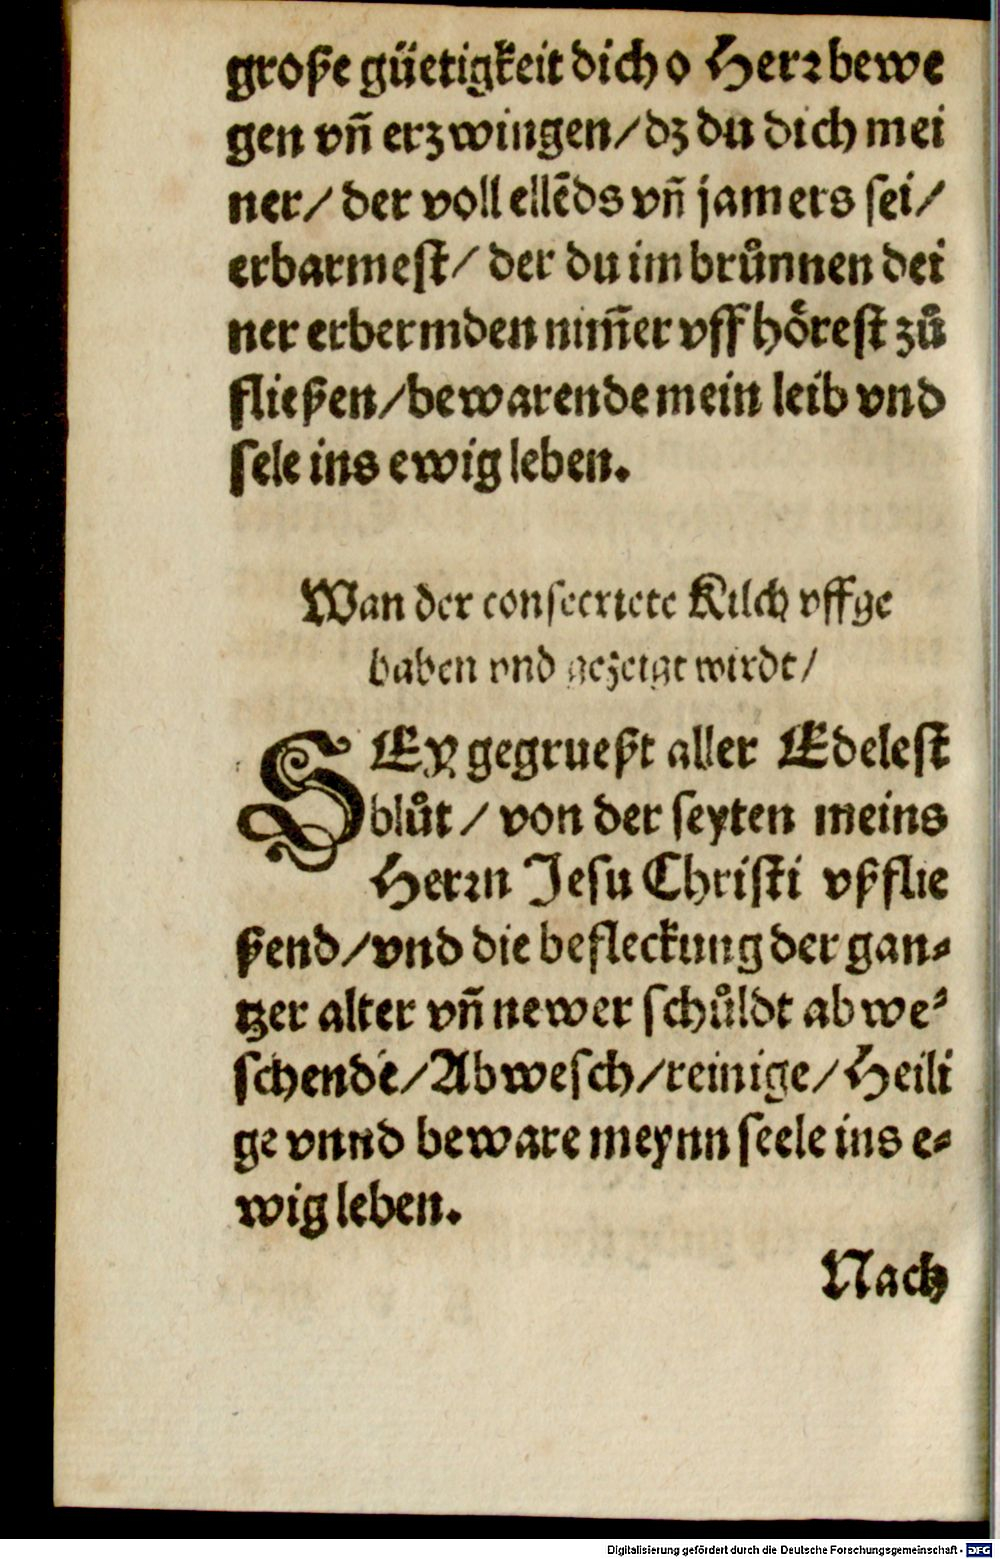 große güetigkeit dich o Herr bewe
gen vñ erzwingen/dz du dich mei
ner/ der voll ellẽds vñ jamers sei/
erbarmest/ der du im brůnnen dei
ner erbermden nim̃er vffhoͤrest zů
fließen/bewarende mein leib vnd
sele ins ewig leben.
Wan der consecriete Kilch vffge
haben vnd gezeigt wirdt/
SEy gegrueßt aller Edelest
blůt / von der seyten meins
Herrn Jesu Christi vßflie
ßend/vnd die befleckung der gan⸗
tzer alter vñ newer schůldt abwe⸗
schende/Abwesch/reinige/Heili
ge vnnd beware meynn seele ins e⸗
wig leben.
Nach
Digitalisierung gefördert durch die Deutsche Forschungsgemeinschaft - DFG